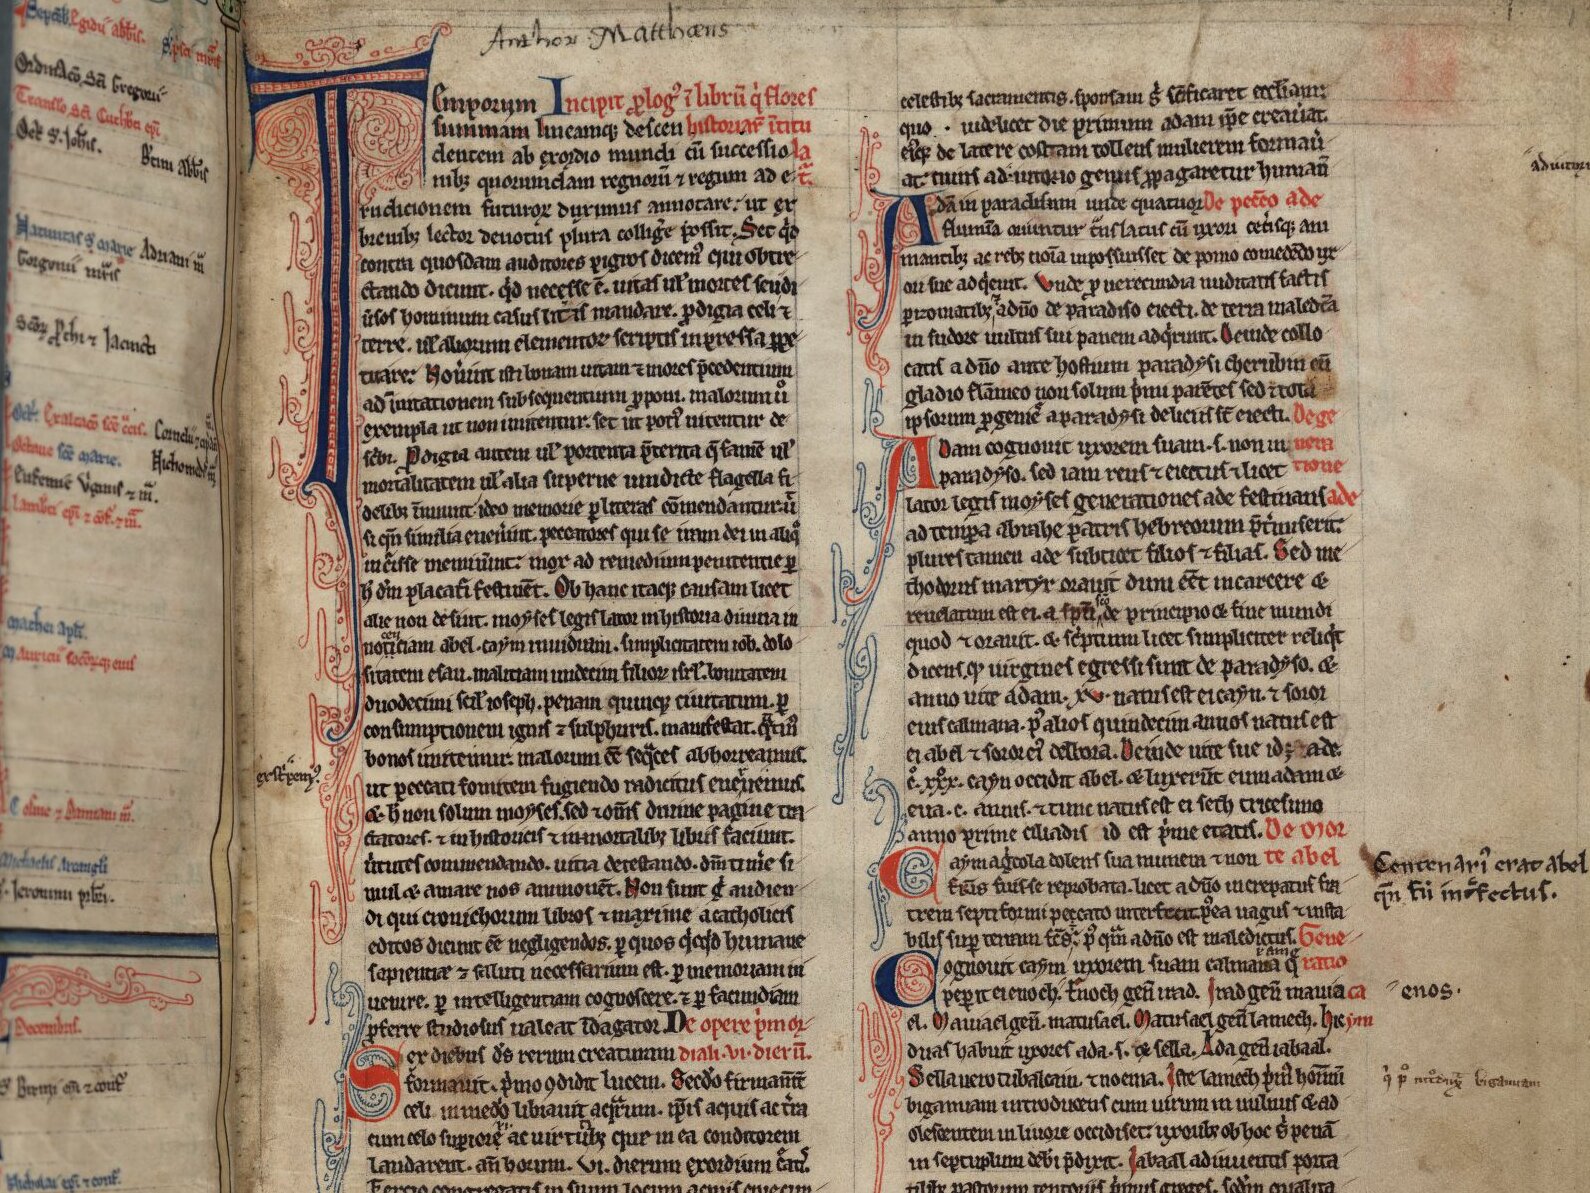 Author Matthæus
Emporum Incipit plog' i libru q flores
summam lineamq; descen historiar'ititu
dentem ab exordio mundi cu successio la
nib; quorumdam regnoru ⁊ regum ad e- t'.
ruditionem futuror duximus annotare. ut ex
breuib; lector deuotus plura collig'e possit. Set qd
contra quosdam auditores pigros dicem' qui obtre
ctando dicunt. qd necesse e. uitas ul' mortes seu di
u'sos hominum casus litt'is mandare. pdigia celi ⁊
terre. ul' aliorum elementor scriptis inpressa ppe
tuare? Nouint isti bonam uitam ⁊ mores pcedentium
ad imitationem subsequentium pponi. malorum u'o
exempla ut non imitentur. set ut poti' uitentur de-
scbi. Pdigia autem ul' portenta pterita q famē ul'
mortalitatem ul' alia superne uindicte flagella fi-
delib; innuunt. ideo memorie p literas cōmendantur. ut
si qn similia euen'int. peccatores qui se iram dei in aliq'
incurisse memin'int: mox ad remedium penitentie p
h' dm placati festinēt. Ob hanc itaq; causam licet
alie non desint. moyses legis lator in historia diuina in
nocenciam abel. caym inuidiam. simplicitatem iob. dolo
sitatem esau. malitiam undecim filior isrl'. bonitatem
duodecimi scil' ioseph. penam quinq; ciuitatum. p
consumptionem ignis ⁊ sulphuris. manifestat. q'tin'
bonos imitemur. malorum ēē seq'ces abhorreamus.
ut peccati fomitem fugiendo radicitus
& h' non solum moyses. sed ⁊ om̄s diuine pagine tra
ctatores. ⁊ in historicis ⁊ in moralib; libris faciunt.
u'tutes commendando. uitia detestando. dm time'e si
mul & amare nos ammonēt. Non sunt g' audien-
di qui cronichorum libros ⁊ maxime a catholicis
editos dicunt ēē negligendos. p quos q'cq'd humane
sapientiæ ⁊ saluti necessarium est. p memoriam in
uenire. p intelligentiam cognoscere. ⁊ p facundiam
pferre studiosus ualeat idagator. De opere p'mor-
ex diebus ds rerum creaturam diali. vi. dieru.
formauit. p'mo 9didit lucem. Secdo firmamt'
celi. in medo libiauit aq'rum. ip'is aquis ac t'ra
cum celo superiore ac uirtutib; que in ea conditorem
laudarent. an' horum. vi. dierum exordium c'at'.
Tercio congregatis in suum locum aquis
celestib; sacramentis. sponsam g' sc'ificaret ecclīam.
quo . uidelicet die primum adam ip'e creauiat.
ei'q; de latere costram tollens mulierem formau'
at. cuius ad.iutorio genus ppagaretur humanu'
Adā in paradisum unde quatuor De pecc'o ade
flumina oriuntur t'nslatus cu' uxori cet'isq; ani
mantib; ac reb; noīa inposuisset. de pomo comededo ux
ori sue adq'euit. Unde p uerecundia nuditatis factis
pizomatib; a dño de paradiso eiecti. de terra maledc'a
in sudore uultus sui panem adq'runt. Deinde collo
catis a dño ante hostium paradysi cherubin cu'
gladio flāmeo non solum p'mi parētes sed ⁊ tota
ipsorum pgenie a paradysi deliciis st' eiecti. De ge
Adam cognouit uxorem suam. s. non in nera
paradyso. sed iam reus ⁊ eiectus ⁊ licet tione
lator legis moyses generationes ade festinans ade
ad tempa abrahe patris hebreorum p't'miserit:
plures tamen ade subticet filios ⁊ filias. Sed me-
thodius martyr orauit dum ēēt in carcere &
reuelatum est ei. a sp'u sco de principio & fine mundi
quod ⁊ orauit. & sc'ptum licet simpliciter reliq't
dicens. q' uirgines egressi sunt de paradyso. &
anno uite adam. xv. natus est ei cayn. ⁊ soror
eius calmana. p' alios quindecim annos natus est
ei abel ⁊ soror ei' delbora. Deinde uite sue ade.
c. xxx. cayn occidit abel. & luxerūt eum adam &
eua. c. annis. ⁊ tunc natus est ei seth tricesimo
anno prime ciliadis id est p'me etatis. De mor
Caym ag'cola dolens sua munera ⁊ non te abel
fr'is fuisse reprobata. licet a dño increpatus fra
trem septiformi peccato interfecit. p' ea uagus ⁊ insta
bilis sup' terram fc's, p' q'm a dño est maledictus. Gene
Cognouit caym uxorem suam calmana q' ratio
pep'it ei enoch. Enoch gen' irad. Irad gen' mauia ca
el. Mauiael gen'. matusael. Matusael gen' lamech. hic ym
duas habuit uxores ada. s. & sella. Ada gen' iabaal.
Sella uero tubalcain. ⁊ noema. Iste lamech p'm' hom̄m
bigamiam introducens cum uirum in uulnus & ad
olescentem in liuore occidiset: uxorib; ob hoc g' penā
in septuplum debi p'dixit. Iabaal adinuentis porta
Centenari' erat abel
qn fu' int'fectus.
enos.
q' p' bigamiam
Egidii abbis.
Ordinaco sci Gregorii
Translo sci Cuthb'ti epi
Oct. s. Joh'is.
B'tini abb'is
Natiuitas s' marie Adriani m'
Gorgonii m'ris
Scor' p'thi ⁊ Jacincti
Exaltaco sce c'cis. Cornelii
Octaue sce marie. Nichomedis m'
Eufemie v'ginis ⁊ m'.
Lamb'ti epi ⁊ cōf. ⁊ m'.
Mathei apli.
Mauricii socior'q; eius
Cosme ⁊ Damiani m'.
Michaelis Arcangli
S. Jeronimi p'bri.
Decembris.
S' Birini epi ⁊ conf'
Nicholai epi ⁊ conf'.